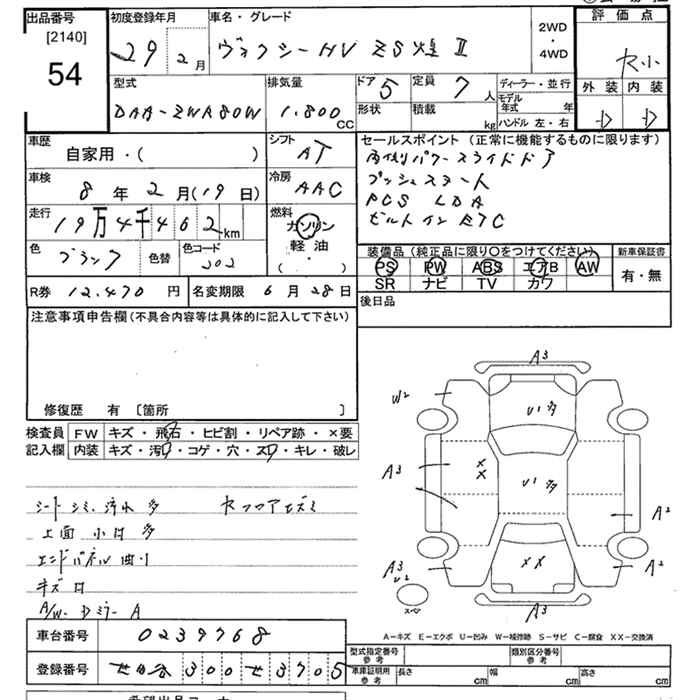 出品番号 初度登録年月 車名・グレード 2WD・4WD 評価点
[2140]
54
29年 2月 ヴォクシーHV ZS煌 II
型式 排気量 ドア 5 定員 7人 ディーラー・並行
DAA-ZWR80W 1.800CC 形状 積載 kg モデル年式 年
ハンドル 左・右
外装 内装
D D
車歴 シフト セールスポイント (正常に機能するものに限ります)
自家用・( ) AT 両側パワースライドドア
車検 冷房 プッシュスタート
8年 2月 (19日) AAC PCS LDA
走行 燃料 ビルトインETC
19万4千462km ガソリン
軽油
( ・ )
色 ブラック 色替 色コード 202
装備品 (純正品に限り○をつけてください) 新車保証書
PS PW ABS エアB AW 有・無
SR ナビ TV カワ
R券 12.470円 名変期限 6月28日 後日品
注意事項申告欄 (不具合内容等は具体的に記入して下さい)
修復歴 有 [箇所 ]
検査員 FW キズ・飛石・ヒビ割・リペア跡・×要
記入欄 内装 キズ・汚・コゲ・穴・スレ・キレ・破レ
シート シミ、汚れ 多
上面 小凹 多
エンドパネル 曲り
キズ 凹
A/W・Dミラー A
A3
W2
U1 多
A3
×
×
U1 多
A2
A3
U2
スペア
××
A2
A3
A-キズ E-エクボ U-凹み W-補修跡 S-サビ C-腐食 XX-交換済
車台番号 0239768
型式指定番号 参考 類別区分番号 参考
登録番号 世田谷 300 せ 3705
車庫証明用 参考 長さ cm 幅 cm 高さ cm